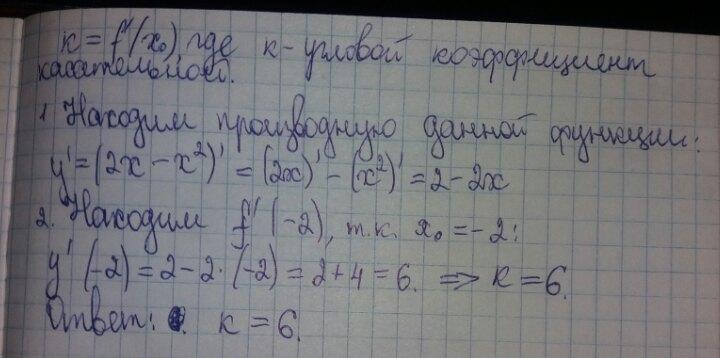 k = f'(x₀) где k - угловой коэффициент
касательной.
1. Находим производную данной функции:
y' = (2x - x²)' = (2x)' - (x²)' = 2 - 2x
2. Находим f'(-2), т.к. x₀ = -2:
y'(-2) = 2 - 2·(-2) = 2 + 4 = 6. => k = 6.
Ответ: k = 6.